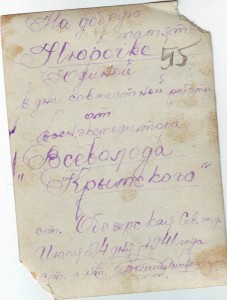 На добрую
память
Нюрочке 45
Юфиной
в дни совместной работы
от
воен
Всеволода
"Крытского"
ст. Обозерская Сев. ж.д.
Июнь 24 дня 1941 года